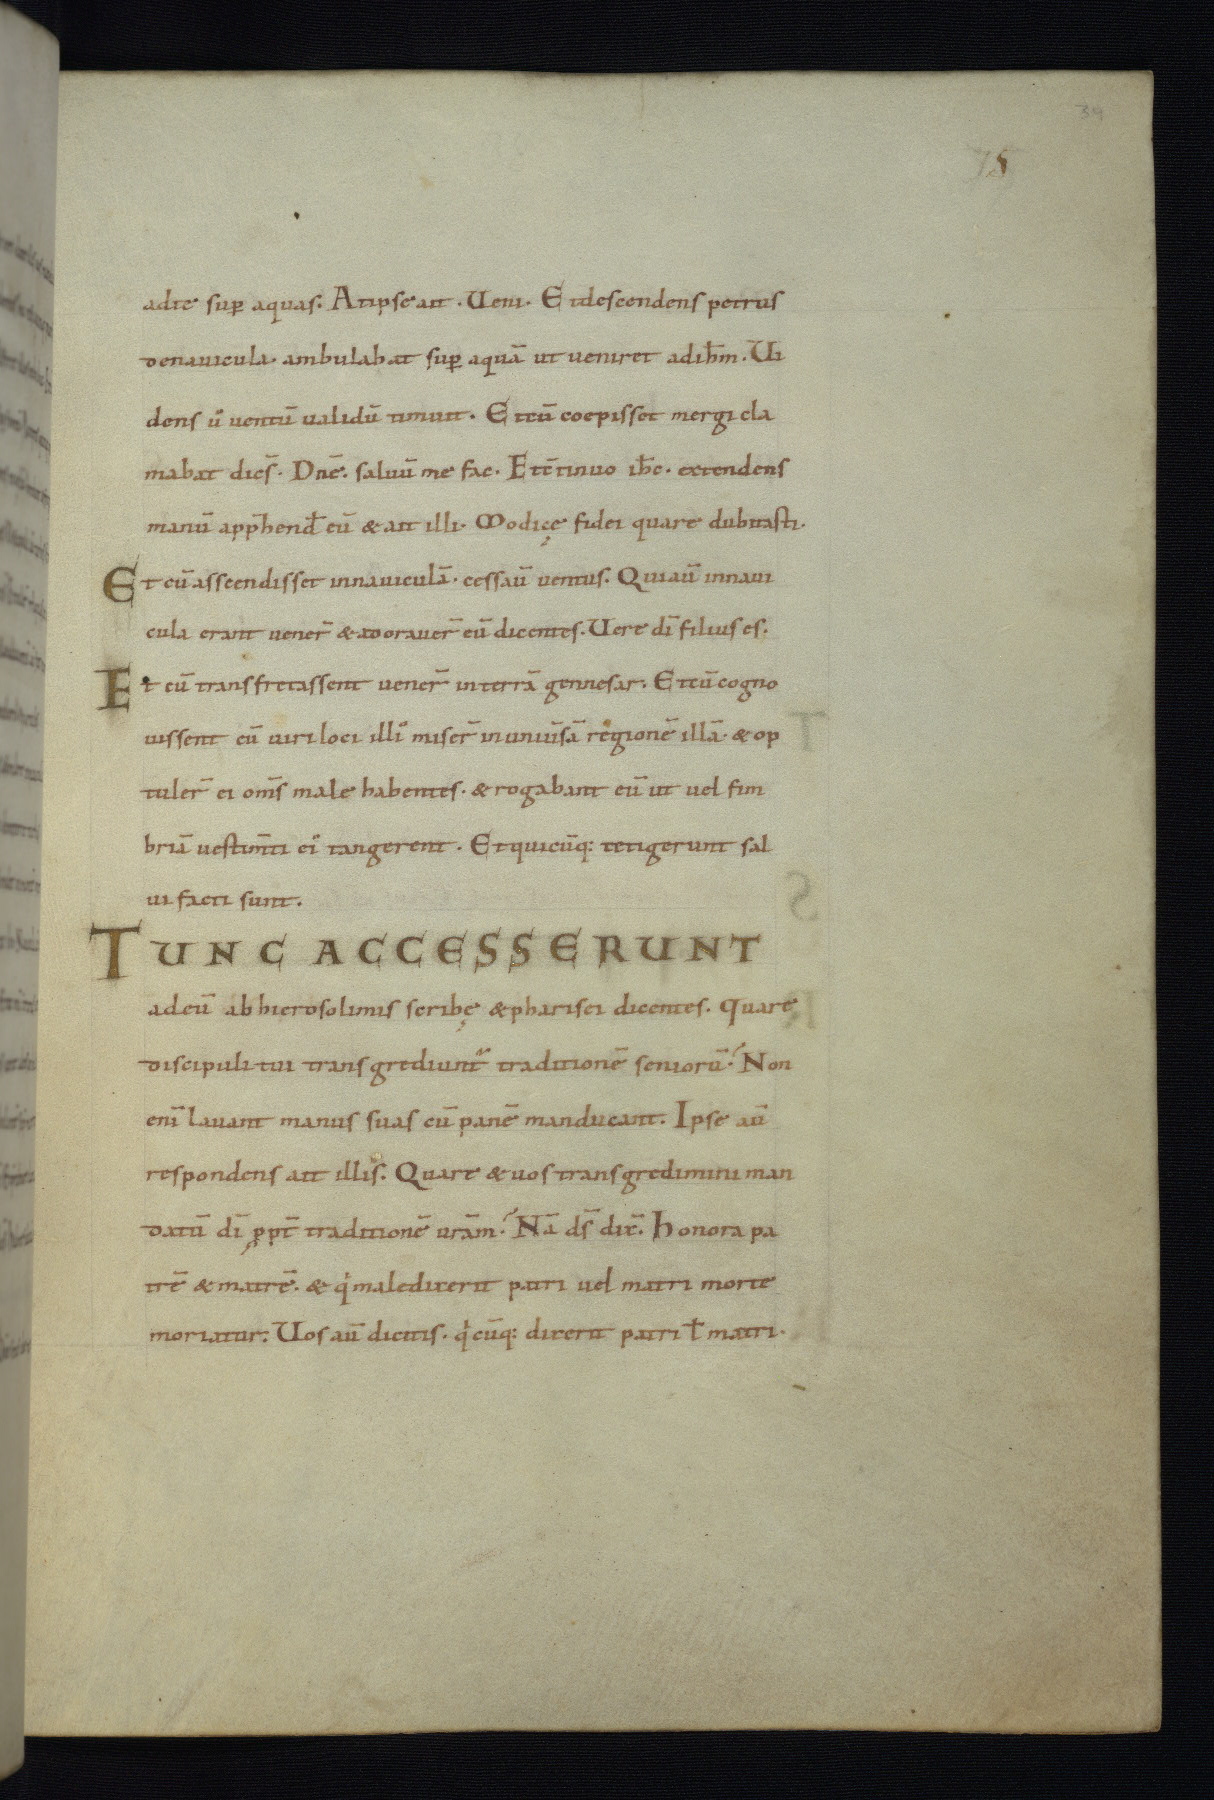 39
75
adte sup̄ aquas. Atipse ait. Ueni. Etdescendens petrus
denauicula. ambulabat sup̄ aquā ut ueniret adih̄m. Ui
dens ū uentū ualidū timuit. Etcū coepisset mergi cla
mabat dicēs. Dn̄e. saluū me fac. Etētinuo ih̄c. extendens
manū app̄hend̄ eū & ait illi. Modicę fidei quare dubitasti.
Et cū asscendisset innauiculā. cessaū uentus. Quiaū innaui
cula erant uener̄ & adorauer̄ eū dicentes. Uere dī filius es.
Et cū transfretassent uener̄ interrā gennesar. Etcū cogno
uissent eū uiri loci illi᾽ miser̄ inuniūsā regionē illā. & op
tuler̄ ei om̄s male habentes. & rogabant eū ut uel fim
briā uestim̄ti ei᾽ tangerent. Etquicūq; tetigerunt sal
ui facti sunt.
TUNC ACCESSERUNT
adeū abhierosolimis scribę & pharisei dicentes. quare
discipuli tui transgrediunt᾽ traditionē seniorū? Non
enī lauant manus suas cū panē manducant. Ipse aū
respondens ait illis. Quare & uos transgredimini man
datū dī ꝓpt̄ traditionē ur̄am? Nā ds̄ dix̄. honora pa
trē & matrē. & qͥ maledixerit patri uel matri morte
moriatur. Uos aū dicitis. qͥcūq; dixerit patri ł matri.